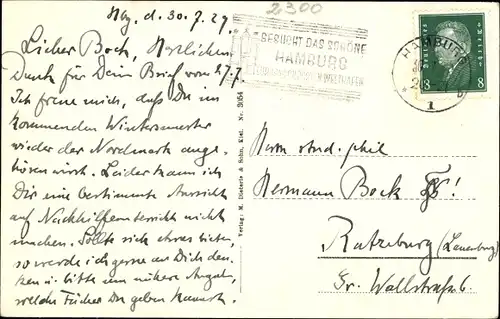 Hbg, d. 30.7.29
2300
Lieber Bock, Herzlichen
Dank für Dein Brief vom 27.7.
Ich freue mich, daß Du im
kommenden Wintersemester
wieder der Nordmark ange-
hören wirst. Leider kann ich
Dir eine bestimmte Aussicht
auf Nachhilfeunterricht nicht
machen. Sollte sich etwas bieten,
so werde ich gerne an Dich den-
ken u. bitte um nähere Angabe,
welche Fächer Du geben kannst.
Verlag: M. Dieterle & Sohn, Kiel. Nr. 3054
BESUCHT DAS SCHÖNE
HAMBURG
HAMBURG
1
Deutsches Reich
8 8
Herrn stud. phil
Hermann Bock
Ratzeburg (Lauenburg)
Gr. Wallstraße 6.